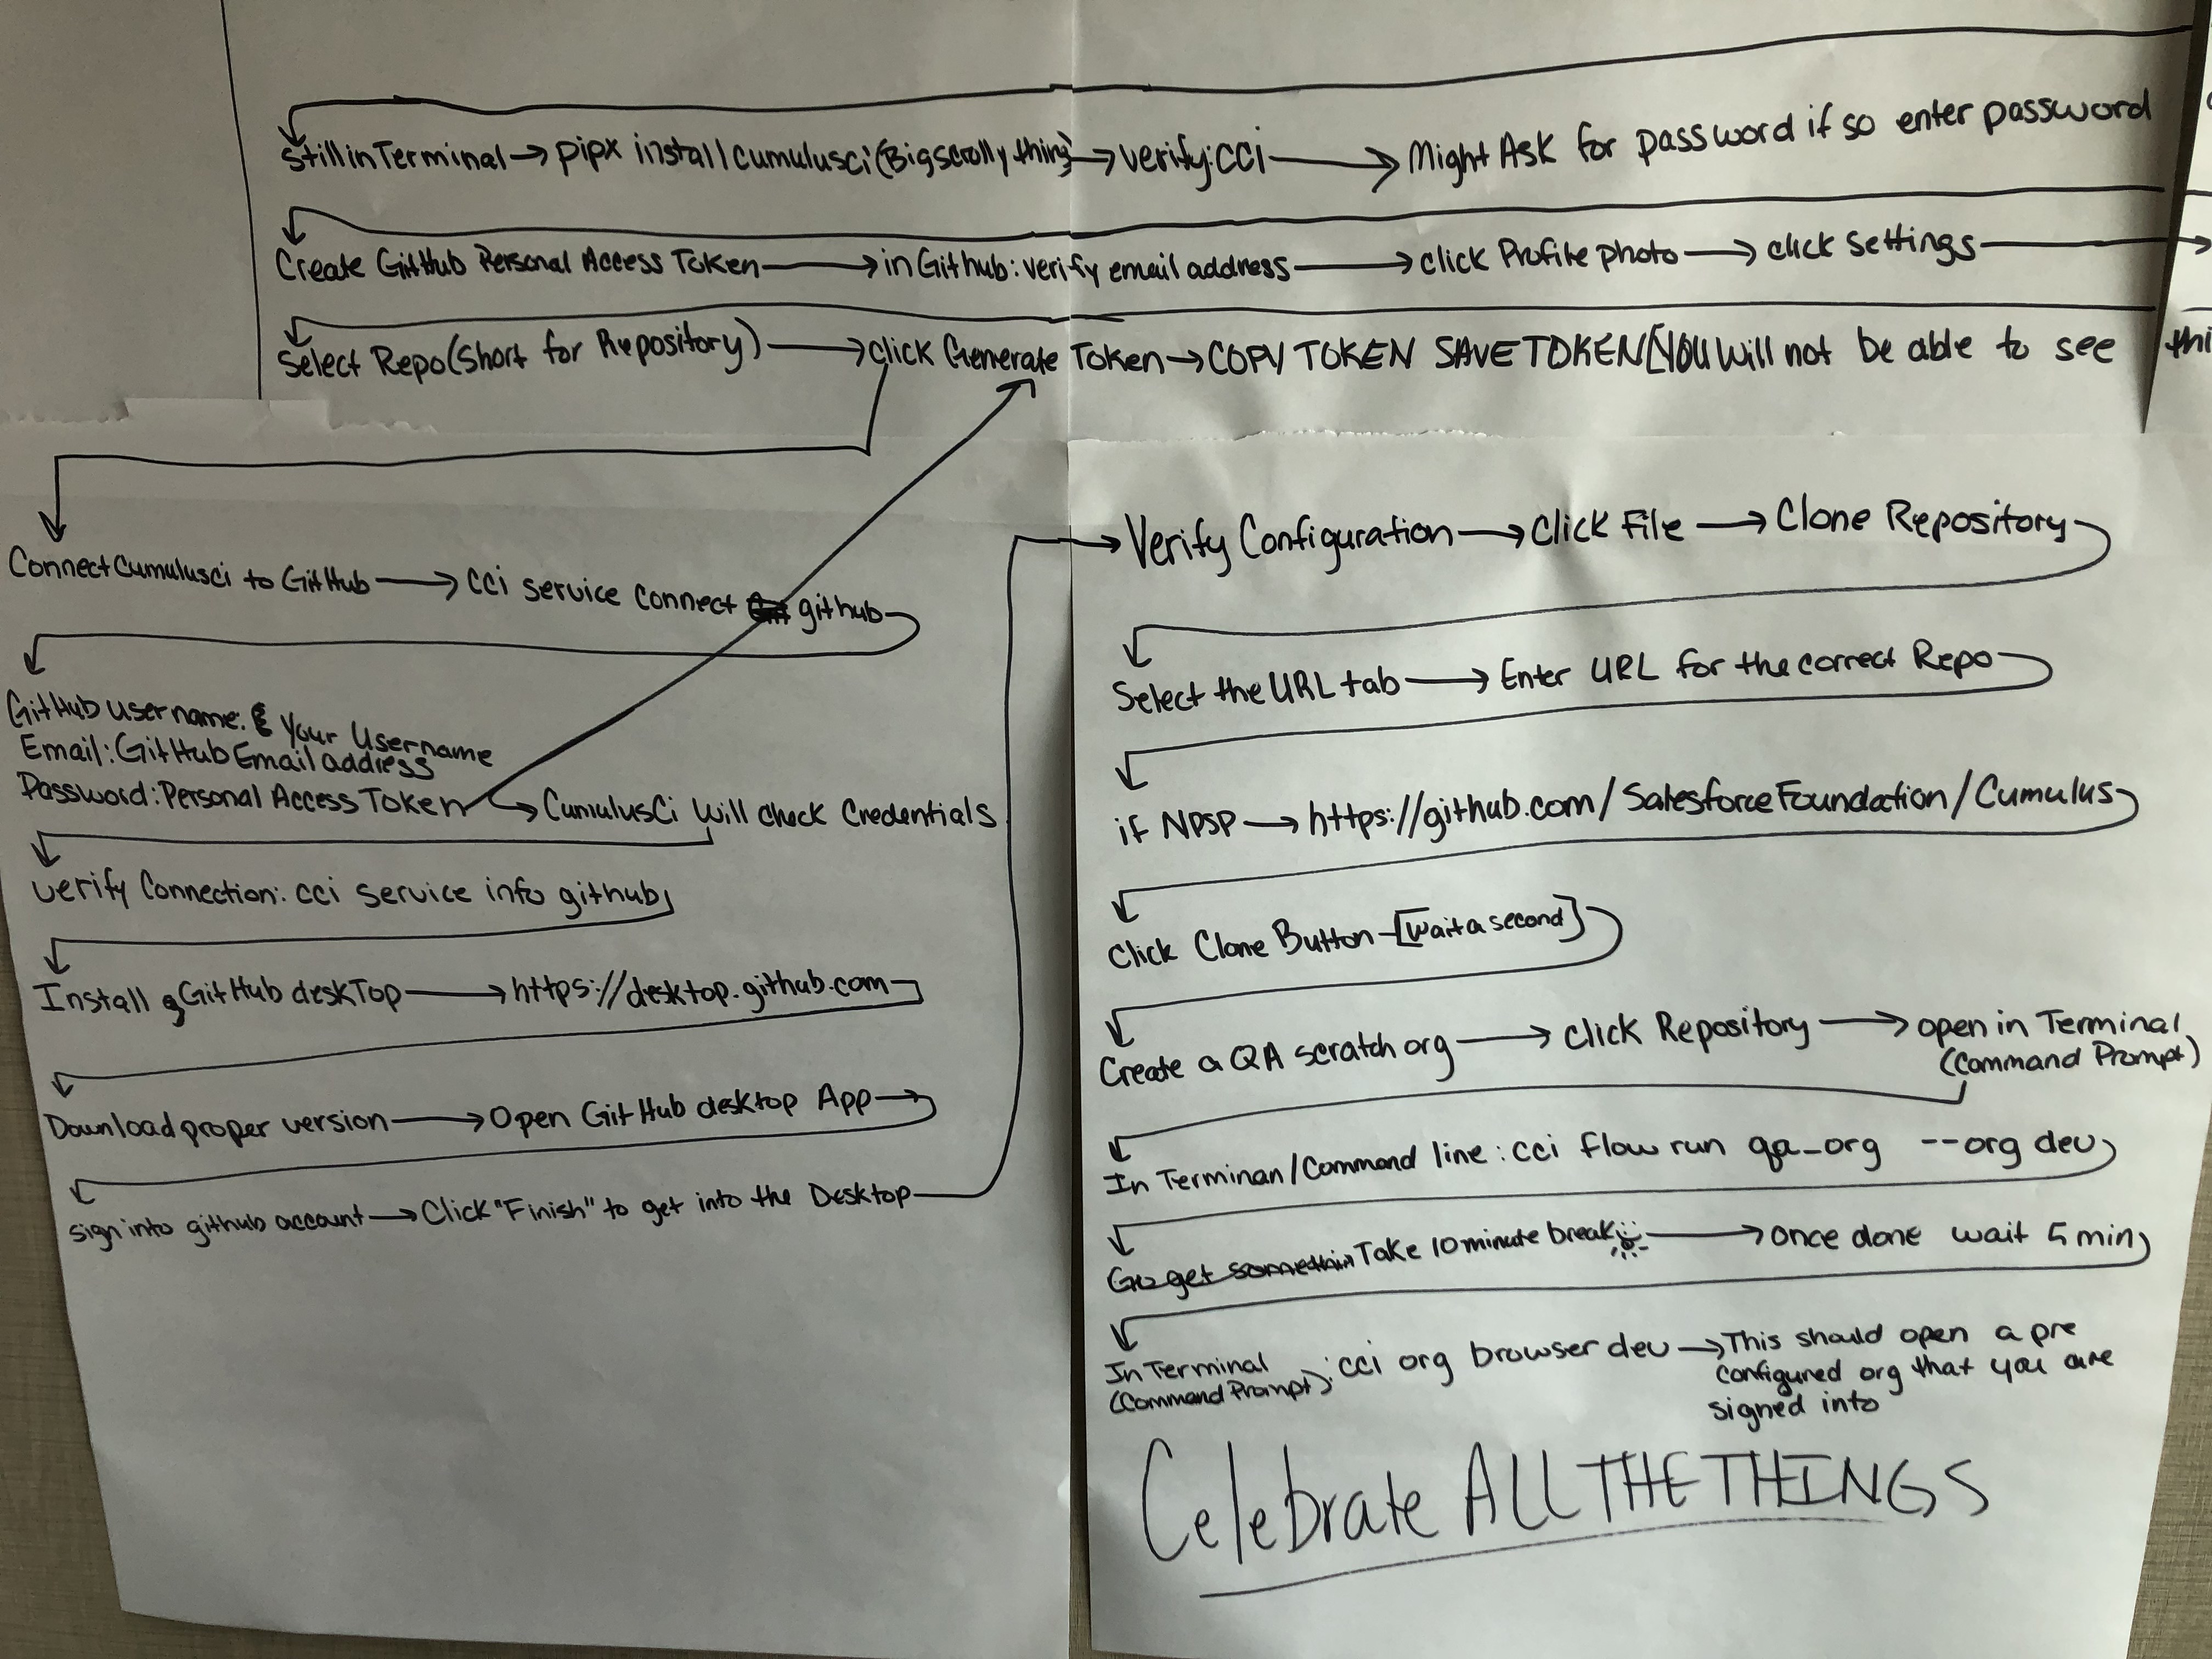 Still in Terminal → pipx install cumulusci (Big scrolly thing) → verify: cci → Might Ask for password if so enter password
Create GitHub Personal Access Token → in Github: verify email address → click Profile photo → click settings →
Select Repo (Short for Repository) → click Generate Token → COPY TOKEN SAVE TOKEN [YOU will not be able to see thi
Connect Cumulusci to GitHub → cci service connect github
GitHub username: Your Username
Email: GitHub Email address
Password: Personal Access Token → CumulusCi will check Credentials
verify Connection: cci service info github
Install GitHub deskTop → https://desktop.github.com
Download proper version → Open GitHub desktop App →
sign into github account → Click "Finish" to get into the Desktop
Verify Configuration → Click File → Clone Repository
Select the URL tab → Enter URL for the correct Repo
if NPSP → https://github.com/SalesforceFoundation/Cumulus
Click Clone Button - [wait a second]
Create a QA scratch org → click Repository → open in Terminal
(Command Prompt)
In Terminan/Command line: cci flow run qa_org --org dev
Go get somethin Take 10 minute break → once done wait 5 min
In Terminal
(Command Prompt): cci org browser dev → This should open a pre
configured org that you are
signed into
Celebrate ALL THE THINGS